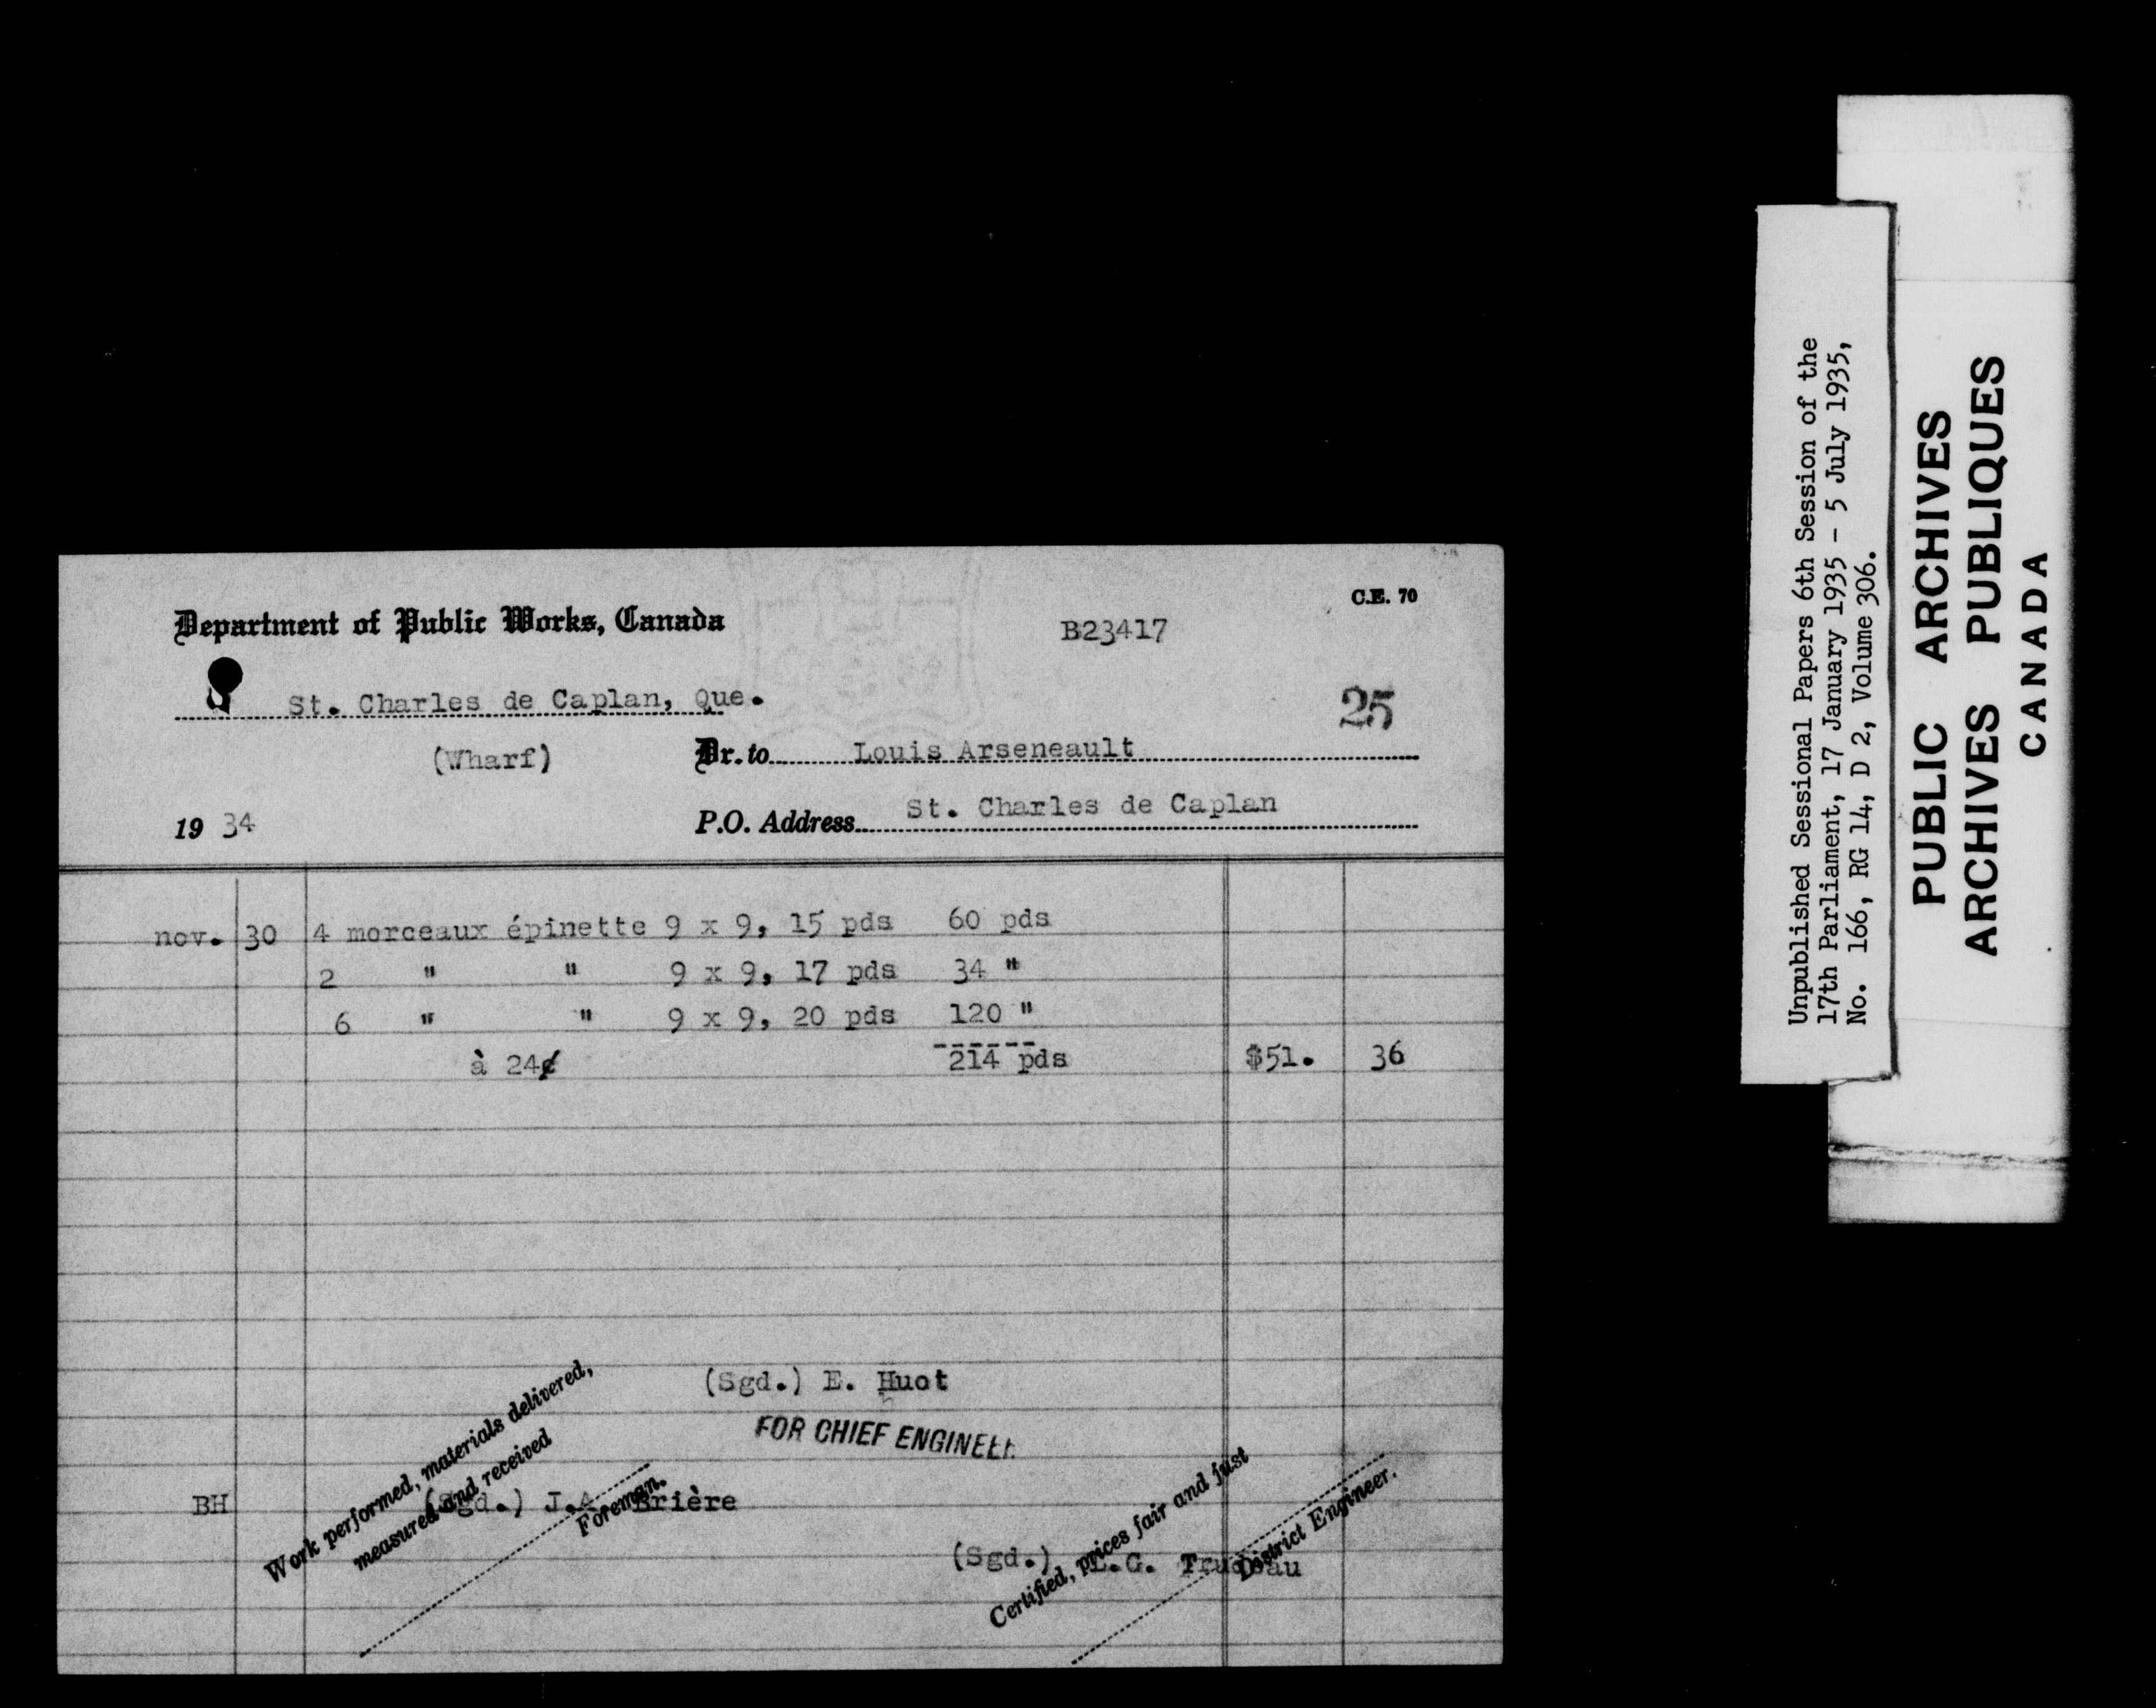 Department of Public Works, Canada
C.E. 70
B23417
St. Charles de Caplan, Que.
25
(Wharf)
Dr. to Louis Arseneault
19 34
P.O. Address St. Charles de Caplan
nov. 30 4 morceaux épinette 9 x 9, 15 pds 60 pds
2 " " 9 x 9, 17 pds 34 "
6 " " 9 x 9, 20 pds 120 "
à 24¢ 214 pds $51. 36
(Sgd.) E. Huot
FOR CHIEF ENGINEER
Work performed, materials delivered,
measured and received
BH
(Sgd.) J.A. Brière
Foreman.
Certified, prices fair and just
(Sgd.) L.G. Trudeau
District Engineer.
Unpublished Sessional Papers 6th Session of the
17th Parliament, 17 January 1935 - 5 July 1935,
No. 166, RG 14, D 2, Volume 306.
PUBLIC ARCHIVES
ARCHIVES PUBLIQUES
CANADA